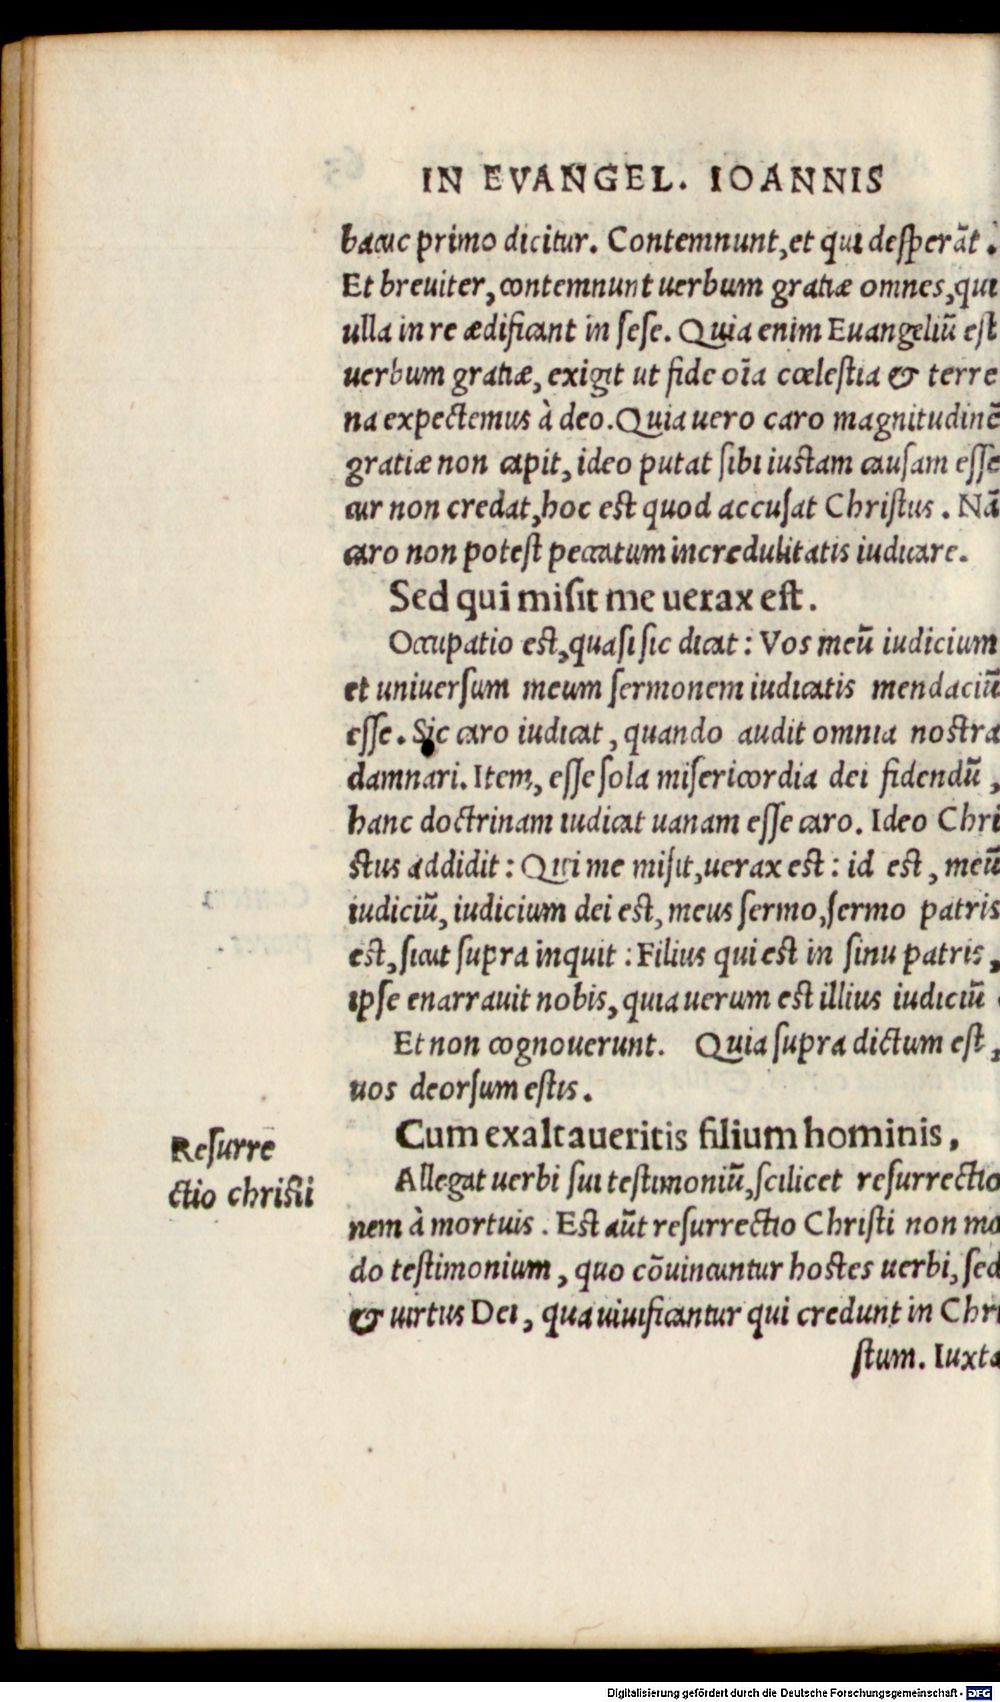 IN EVANGEL. IOANNIS
bacuc primo dicitur. Contemnunt, et qui desperãt.
Et breuiter, contemnunt uerbum gratiæ omnes, qui
ulla in re ædificant in sese. Quia enim Euangeliũ est
uerbum gratiæ, exigit ut fide oĩa cœlestia & terre
na expectemus à deo. Quia uero caro magnitudinẽ
gratiæ non capit, ideo putat sibi iustam causam esse
cur non credat, hoc est quod accusat Christus. Nã
caro non potest peccatum incredulitatis iudicare.
Sed qui misit me uerax est.
Occupatio est, quasi sic dicat: Vos meũ iudicium
et uniuersum meum sermonem iudicatis mendaciũ
esse. Sic caro iudicat, quando audit omnia nostra
damnari. Item, esse sola misericordia dei fidendũ,
hanc doctrinam iudicat uanam esse caro. Ideo Chri
stus addidit: Qui me misit, uerax est: id est, meũ
iudiciũ, iudicium dei est, meus sermo, sermo patris
est, sicut supra inquit: Filius qui est in sinu patris,
ipse enarrauit nobis, quia uerum est illius iudiciũ
Et non cognouerunt. Quia supra dictum est,
uos deorsum estis.
Cum exaltaueritis filium hominis,
Resurre
ctio christi
Allegat uerbi sui testimoniũ, scilicet resurrectio
nem à mortuis. Est aũt resurrectio Christi non mo
do testimonium, quo cõuincuntur hostes uerbi, sed
& uirtus Dei, qua uiuificantur qui credunt in Chri
stum. Iuxta
Digitalisierung gefördert durch die Deutsche Forschungsgemeinschaft - DFG